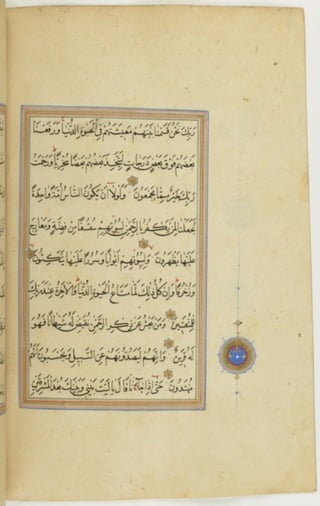 رَبِّكَ نَحْنُ قَسَمْنَا بَيْنَهُمْ مَعِيشَتَهُمْ فِي الْحَيٰوةِ الدُّنْيَا وَرَفَعْنَا
بَعْضَهُمْ فَوْقَ بَعْضٍ دَرَجَاتٍ لِيَتَّخِذَ بَعْضُهُمْ بَعْضًا سُخْرِيًّا وَرَحْمَتُ
رَبِّكَ خَيْرٌ مِمَّا يَجْمَعُونَ وَلَوْلَا أَنْ يَكُونَ النَّاسُ أُمَّةً وَاحِدَةً
لَجَعَلْنَا لِمَنْ يَكْفُرُ بِالرَّحْمٰنِ لِبُيُوتِهِمْ سُقُفًا مِنْ فِضَّةٍ وَمَعَارِجَ
عَلَيْهَا يَظْهَرُونَ وَلِبُيُوتِهِمْ أَبْوَابًا وَسُرُرًا عَلَيْهَا يَتَّكِئُونَ
وَزُخْرُفًا وَإِنْ كُلُّ ذٰلِكَ لَمَّا مَتَاعُ الْحَيٰوةِ الدُّنْيَا وَالْآخِرَةُ عِنْدَ رَبِّكَ
لِلْمُتَّقِينَ وَمَنْ يَعْشُ عَنْ ذِكْرِ الرَّحْمٰنِ نُقَيِّضْ لَهُ شَيْطَانًا فَهُوَ
لَهُ قَرِينٌ وَإِنَّهُمْ لَيَصُدُّونَهُمْ عَنِ السَّبِيلِ وَيَحْسَبُونَ أَنَّهُمْ
مُهْتَدُونَ حَتَّىٰ إِذَا جَاءَنَا قَالَ يَا لَيْتَ بَيْنِي وَبَيْنَكَ بُعْدَ الْمَشْرِقَيْنِ